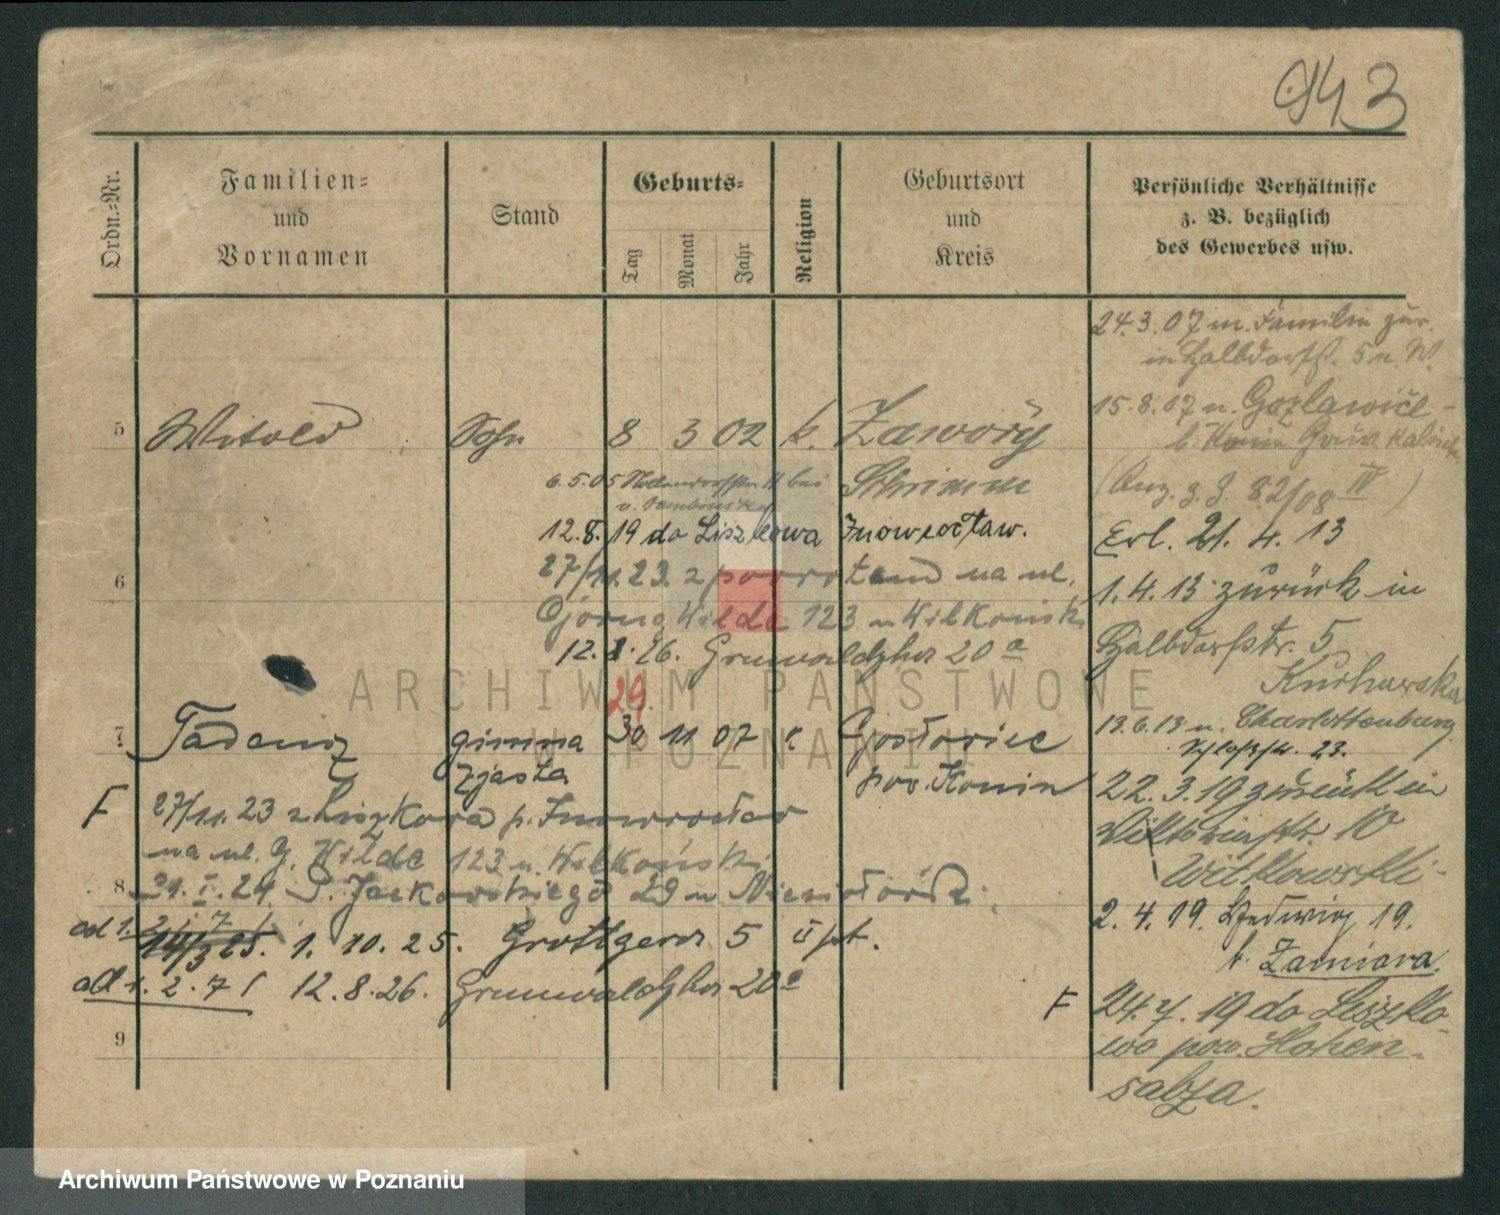 943
Ordn.-Nr.
Familien-
und
Vornamen
Stand
Geburts-
Tag
Monat
Jahr
Religion
Geburtsort
und
Kreis
Persönliche Verhältnisse
z. B. bezüglich
des Gewerbes usw.
24.3.07 m. Familie zur.
in Halbdorfstr. 5 n. W.
15.8.07 n.
5 Witold Sohn 8 3 02 k. Zawory
Schrimm
b. Konin Gouv. Kalisch
(Anz. z. J. 82/08 IV)
6.5.05 bei
12.8.19 do Liszkowa Inowrocław.
Erl. 21.4.13
27/11.23. z powrotem na ul.
6
1.4.13 zurück in
Wilde 123 u Wilkoński
Halbdorfstr. 5
12.8.26. Grunwaldzka 20a
29
13.6.13 n. Charlottenburg
7 Tadeusz gimna 30 11 07 k. Gosławice
zjasta pow. Konin
22.3.19 zurück in
F 27/11.23 z Liszkowa p. Inowrocław
Viktoriastr. 10
na ul. G. Wilde 123 u. Wilkoński
Witkowski
8 21.I.24. Jackowskiego 29 u
2.4.19. Hedwig 19.
ad 1. 2. 7
14/3 25. 1. 10. 25. Grottgera 5 II pt.
b. Zamiara.
ad 1. 2. 7 12.8.26. Grunwaldzka 20a
F 24.7.19 do Liszko-
9
wo pow. Hohen-
salza.
ARCHIWUM PAŃSTWOWE
W POZNANIU
Archiwum Państwowe w Poznaniu